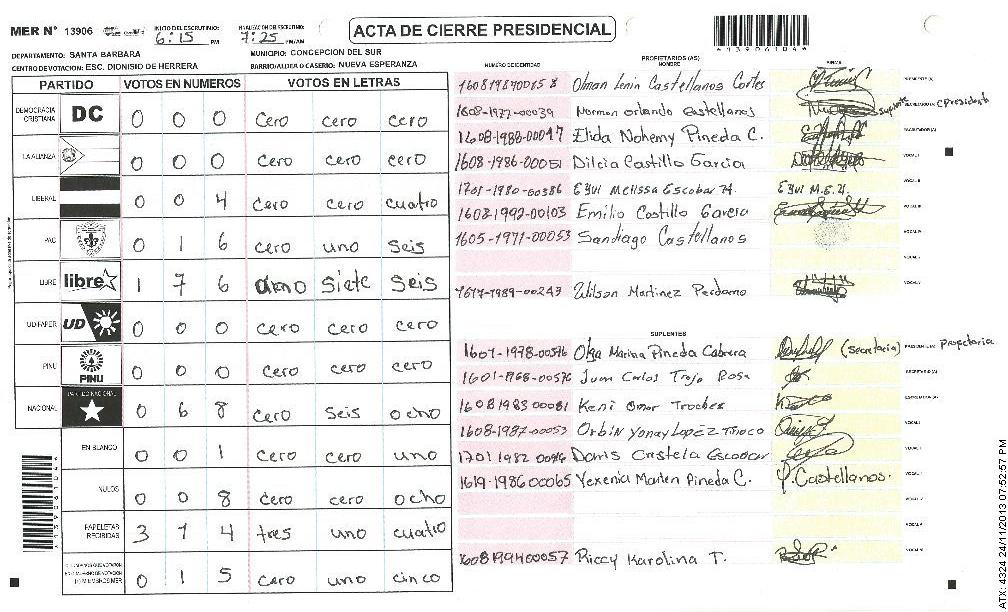 MER Nº 13906
INICIO DEL ESCRUTINIO: 6:15 PM
7:25 PM/AM
ACTA DE CIERRE PRESIDENCIAL
DEPARTAMENTO: SANTA BARBARA
MUNICIPIO: CONCEPCION DEL SUR
CENTRO DE VOTACION: ESC. DIONISIO DE HERRERA
BARRIO/ALDEA O CASERIO: NUEVA ESPERANZA
PARTIDO VOTOS EN NUMEROS VOTOS EN LETRAS
DEMOCRACIA CRISTIANA DC 0 0 0 cero cero cero
LA ALIANZA 0 0 0 cero cero cero
LIBERAL 0 0 4 cero cero cuatro
PAC 0 1 6 cero uno seis
LIBRE libre 1 7 6 uno siete seis
UD/FAPER UD 0 0 0 cero cero cero
PINU PINU 0 0 0 cero cero cero
NACIONAL PARTIDO NACIONAL 0 6 8 cero seis ocho
EN BLANCO 0 0 1 cero cero uno
NULOS 0 0 8 cero cero ocho
PAPELETAS RECIBIDAS 3 1 4 tres uno cuatro
0 1 5 cero uno cinco
PROPIETARIOS (AS)
NUMERO DE IDENTIDAD NOMBRE FIRMAS
Olman Lenin Castellanos Cortes
1608-1977-00039 Norman Orlando Castellanos
1608-1988-00047 Elida Nohemy Pineda C.
1608-1986-00051 Dilcia Castillo Garcia
1701-1980-00386 Eyui Melissa Escobar M. Eyui M.E.M.
1608-1992-00103 Emilio Castillo Garcia
1605-1971-00053 Santiago Castellanos
1617-1989-00243 Wilson Martinez Perdomo
SUPLENTES
Olga Marina Pineda Cabrera (secretaria)
Juan Carlos Trejo Rosa
1608 1983 00081 Keni Omar Troches
1608-1987-00053 Orbin Yonay Lopéz Tinoco
Doris Cristela Escobar
1619-1986 00065 Yexenia Marlen Pineda C. Y. Castellanos.
1608 1994 00057 Riccy Karolina T.
ATX: 4324 24/11/2013 07:52:57 PM